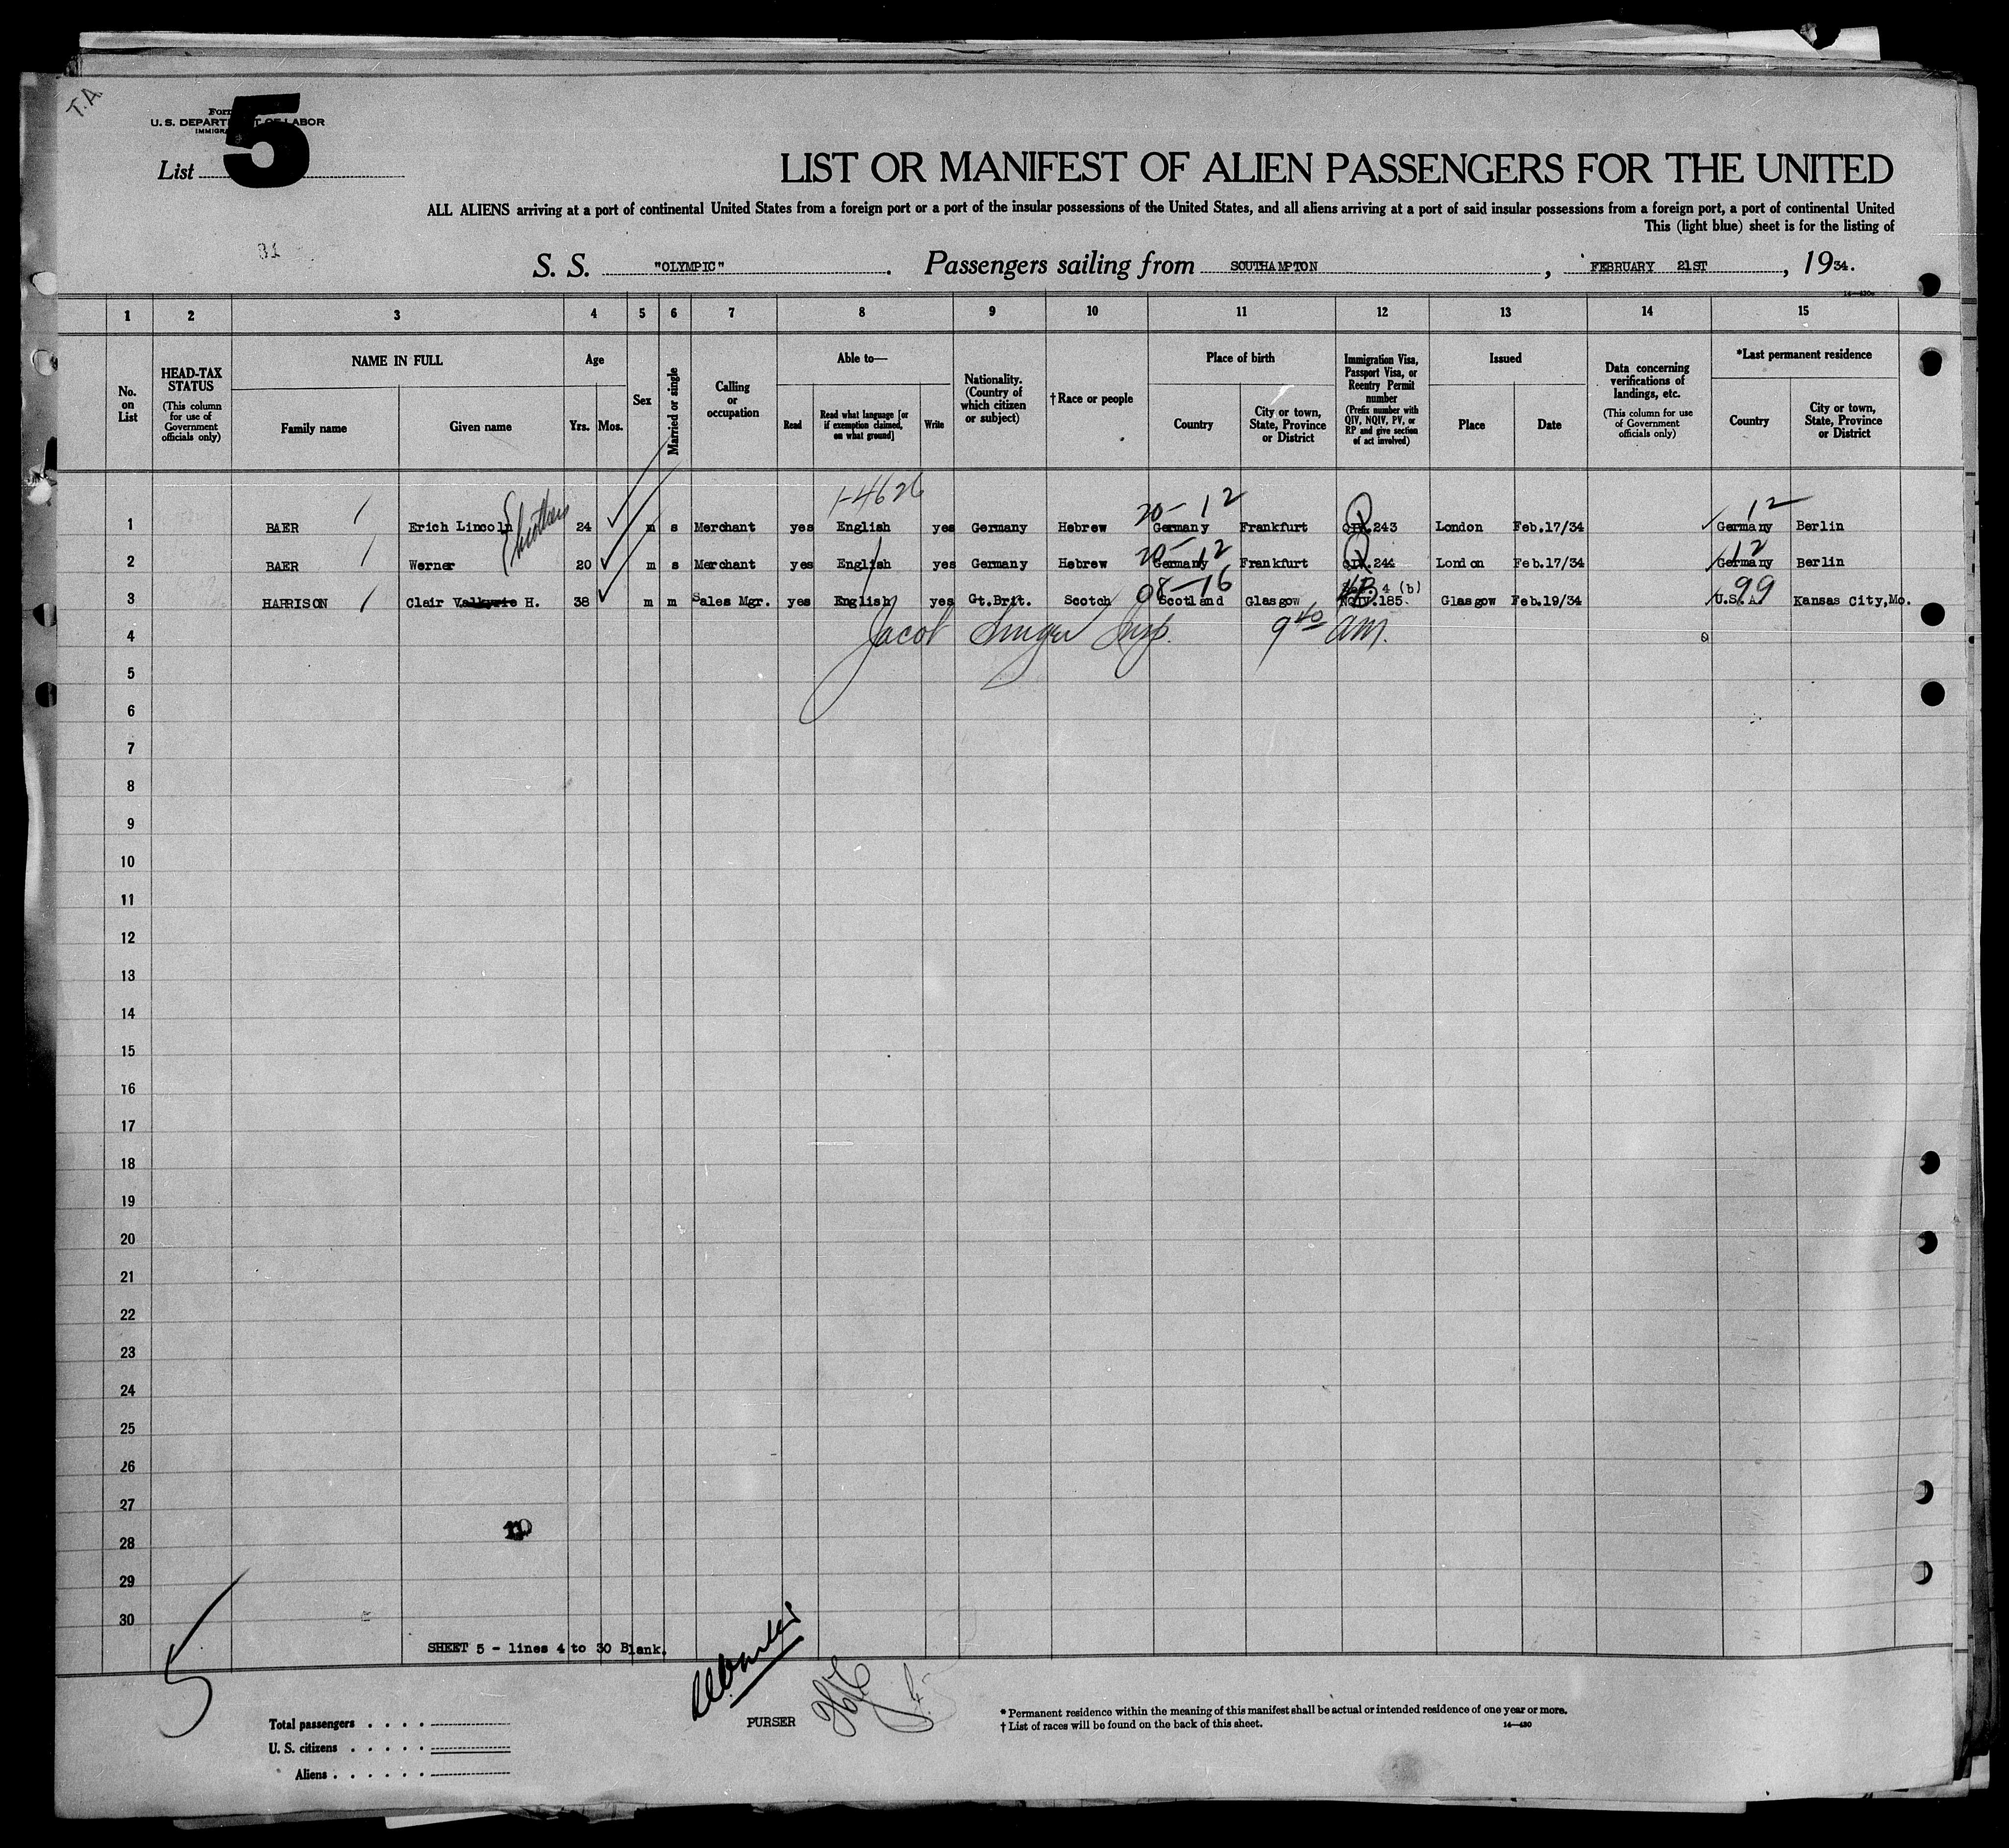 T.A
Form
U. S. DEPARTMENT OF LABOR
IMMIGRA
List 5
LIST OR MANIFEST OF ALIEN PASSENGERS FOR THE UNITED
ALL ALIENS arriving at a port of continental United States from a foreign port or a port of the insular possessions of the United States, and all aliens arriving at a port of said insular possessions from a foreign port, a port of continental United
This (light blue) sheet is for the listing of
S. S. "OLYMPIC". Passengers sailing from SOUTHAMPTON, FEBRUARY 21ST, 1934.
1 2 3 4 5 6 7 8 9 10 11 12 13 14 15
No. on List
HEAD-TAX STATUS (This column for use of Government officials only)
NAME IN FULL Family name Given name
Age Yrs. Mos.
Sex
Married or single
Calling or occupation
Able to— Read Read what language [or if exemption claimed, on what ground] Write
Nationality. (Country of which citizen or subject)
†Race or people
Place of birth Country City or town, State, Province or District
Immigration Visa, Passport Visa, or Reentry Permit number (Prefix number with QIV, NQIV, PV, or RP and give section of act involved)
Issued Place Date
Data concerning verifications of landings, etc. (This column for use of Government officials only)
*Last permanent residence Country City or town, State, Province or District
1-4626 20-12 12
1 BAER Erich Lincoln brothers 24 m s Merchant yes English yes Germany Hebrew Germany Frankfurt QIV.243 London Feb.17/34 Germany Berlin
20-12 12
2 BAER Werner 20 m s Merchant yes English yes Germany Hebrew Germany Frankfurt QIV.244 London Feb.17/34 Germany Berlin
08-16 4 (b) 99
3 HARRISON Clair Valkyrie H. 38 m m Sales Mgr. yes English yes Gt.Brit. Scotch Scotland Glasgow NQIV.185. Glasgow Feb.19/34 U.S.A. Kansas City,Mo.
4 Jacob Singer Insp. 9 40 am.
5
6
7
8
9
10
11
12
13
14
15
16
17
18
19
20
21
22
23
24
25
26
27
28
29
30
SHEET 5 - lines 4 to 30 Blank.
5
PURSER
Total passengers
U. S. citizens
Aliens
* Permanent residence within the meaning of this manifest shall be actual or intended residence of one year or more.
† List of races will be found on the back of this sheet.
14—430